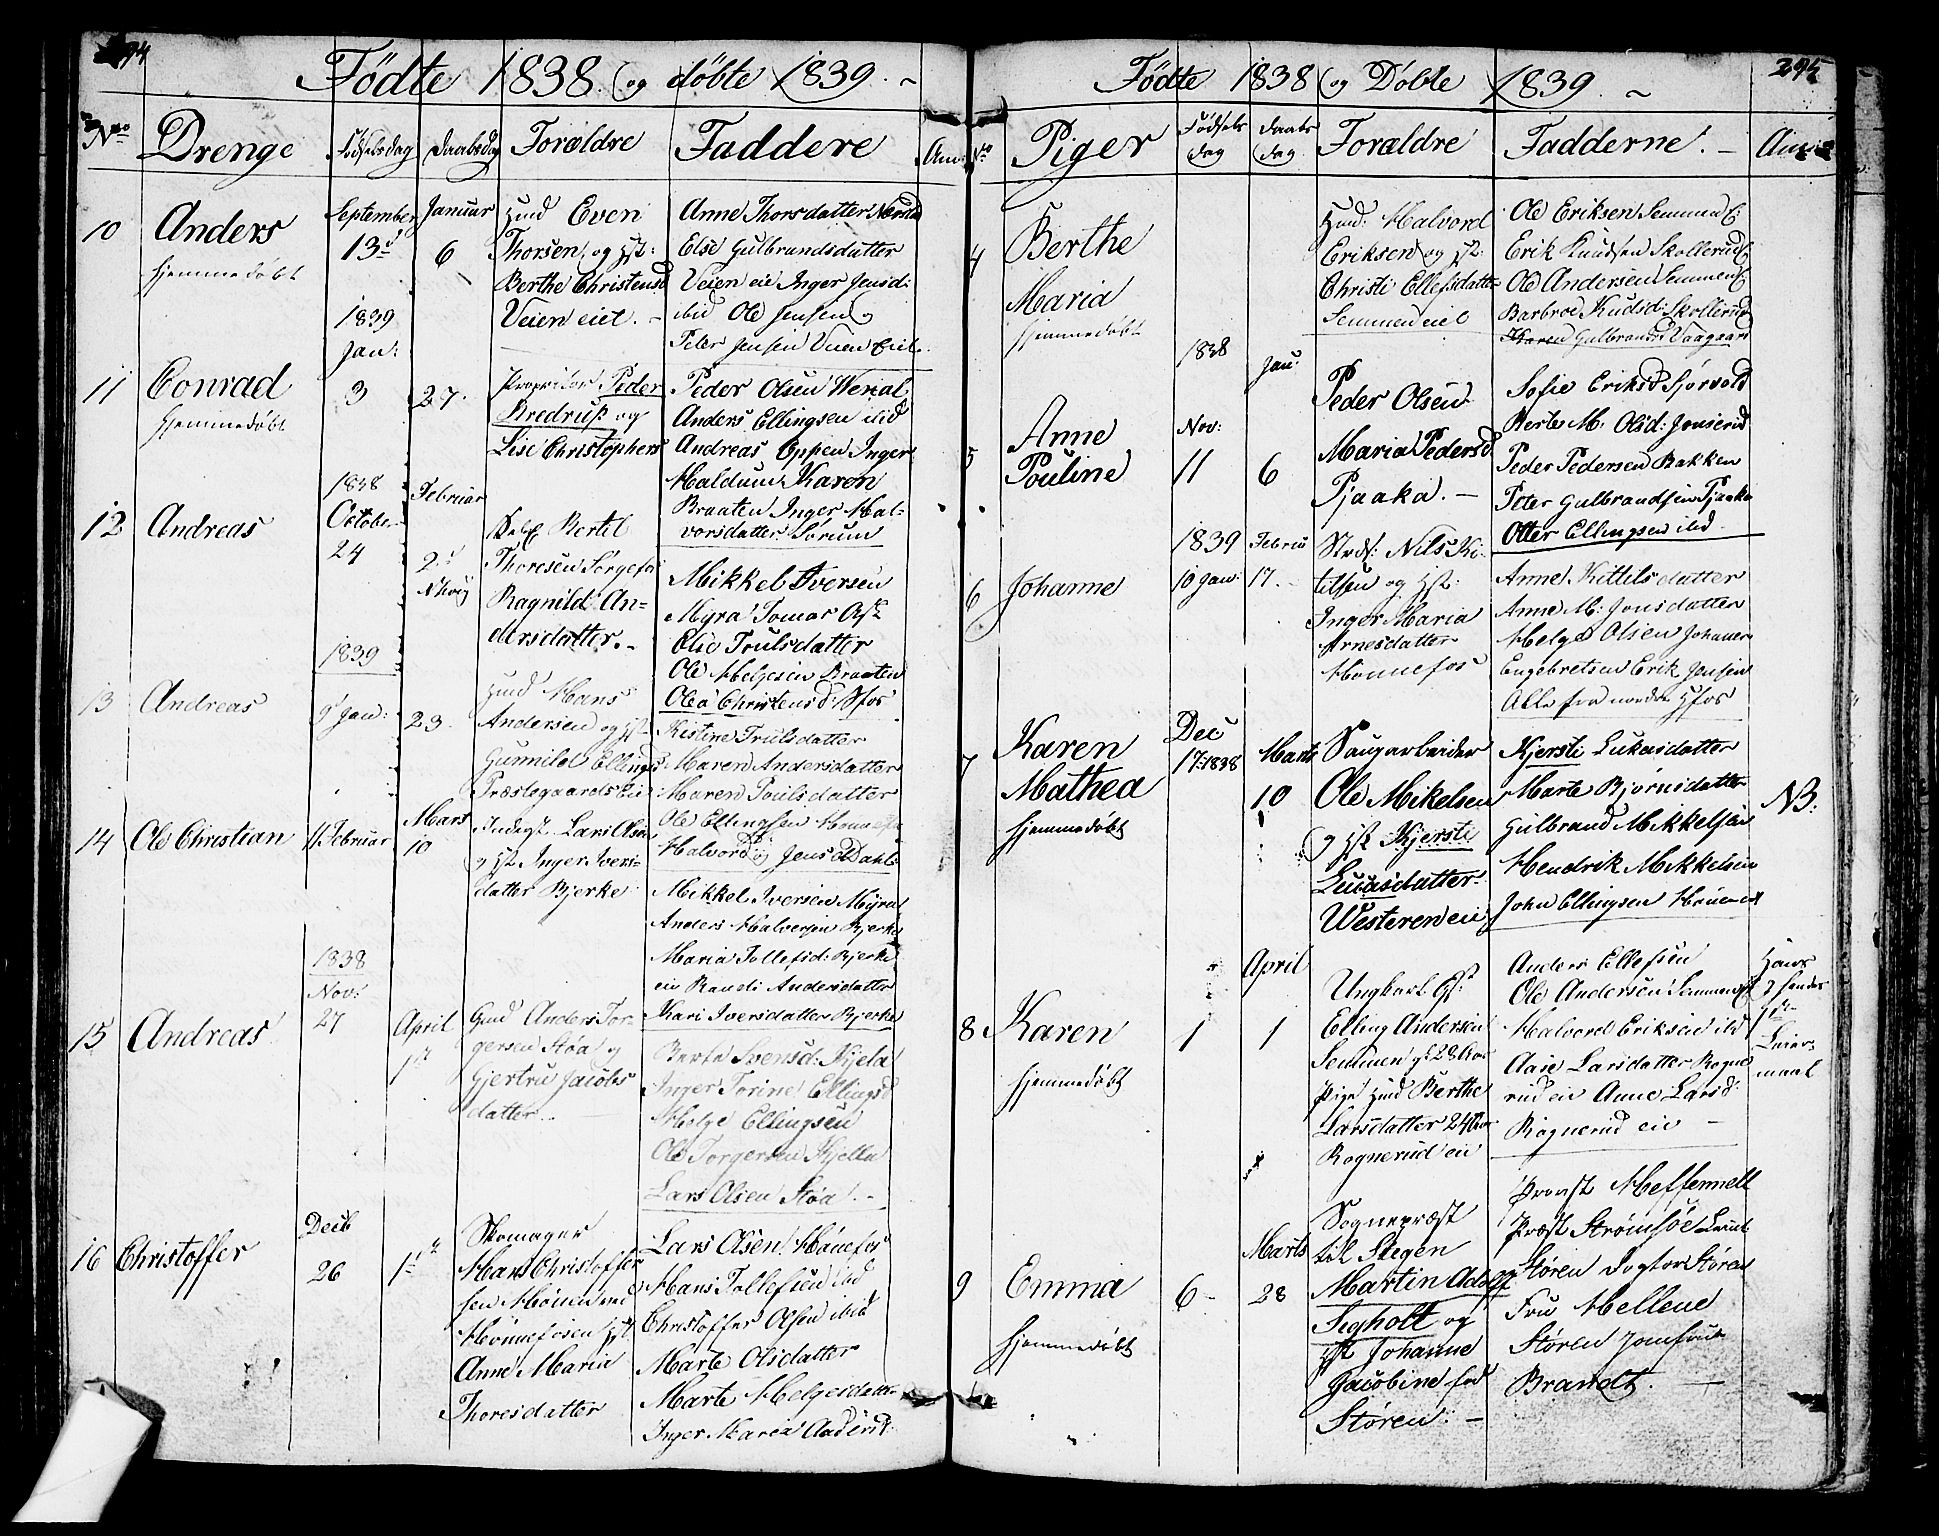 294
Födte 1838 og döbte 1839.
No Drenge Födselsdag Daabsdag Forældre Faddere Anm:
10 Anders
hjemmedöbt
September 13de
Januar 6
Hmd Even
Thorsen og Hst:
Berthe Christensd
Veien eiet.
Anne Thorsdatter
Else Gulbrandsdatter
Veien eie Inger Jensd:
ibid Ole Jensen og
Peter Jensen Veien Eiet
11 Conrad
hjemmedöbt
1839
Jan:
3
27.
Proprietær Peder
Bredrup og
Lise Christophers
Peder Olsen Wexal
Anders Ellingsen ibid
Andreas Oppen Inger
Haldum Karen
Braaten Inger Hal-
vorsdatter Sörum
12 Andreas
1838
October
24
Februar
2d
Bertel
Thoresen
Ragnild An-
dersdatter.
Mikkel Iversen
Myra Tomas
Olie Trulsdatter
Ole Helgesen Braaten
Olea Christensd: Hfos
13 Andreas
1839
9 Jan:
23.
Hmd Hans
Andersen og Hst
Gunnild Ellings
Præstegaards Eie
Kistine Trulsdatter
Maren Andersdatter
Maren Poulsdatter
Ole Ellingsen
Halvord og Jens Dahl
14 Ole Christian
11 Februar
Mars
10
Inderst Lars Olsen
og Hst Inger Iveri-
datter Bjerke
Mikkel Iversen Myra
Anders Halversen Bjerke
Maria Tollefsd: Bjerke
eie Randi Andersdatter
Kari Iversdatter Bjerke
15 Andreas
1838
Nov:
27
April
1ste
Gmd Anders Tor-
gersen Stöa og
Gjertru Jacobs
datter.
Berte Svensd: Kjela
Inger Torine Ellingsd
Helge Ellingsen
Ole Torgersen Kjella
Lars Olsen Stöa.
16 Christoffer
Decb
26
1ste
Skomager
Hans Christoffer
sen Hönen ved
Hönnefosen Hst
Anne Maria
Thoresdatter
Lars Olsen Hönefos
Hans Tollefsen ibd
Christoffer Olsen ibid
Marte Olsdatter
Marte Helgesdatter
Inger Maria
295
Födte 1838 og Döbte 1839.
No Piger Födsels dag Daabs dag Forældre Fadderne. Anm:
4 Berthe
Maria
hjemmedöbt
Hmd: Halvord
Eriksen og Hst:
Christi Ellefsdatter
Semmen eiet
Ole Eriksen Semmen E:
Erik Knudsen Skollerud E
Ole Andersen Semmen E
Barbroe Kudsd: Skollerud
Karen Gulbrandsd Vaagaard
5 Anne
Pouline
1838
Nov:
11
Jan:
6
Peder Olsen
Maria Pedersd
Pjaaka.
Sofie Eriksd
Berte M. Olsd:
Peder Pedersen Bakken
Peter Gulbrandsen Pjaaka
Otter Ellingsen ibd.
6 Johanne
1839
10 Jan:
Februa
17.
Nils Ki-
tilsen og Hst:
Inger Maria
Arnesdatter
Hönnefos
Anne Kittilsdatter
Anne M: Jonsdatter
Helge Olsen Johannes
Engebretsen Erik Jensen
Alle fra nordre Hfos
7 Karen
Mathea
hjemmedöbt
Dec
17: 1838
Marts
10
Saugarbeider
Ole Mikelsen
og Hst Kjersti
Lucasdatter
Westeren eie
Kjersti Lukasdatter
Marte Bjørnsdatter
Gulbrand Mikkelsen
Hendrik Mikkelsen
John Ellingsen
NB:
8 Karen
hjemmedöbt
1
April
1
Ungkarl
Elling Andersen
Semmen gl 28 Aar
Pige Hmd Berthe
Larsdatter 24 Aar
Rognerud eie
Anders Ellefsen
Ole Andersen Semmen
Halvord Eriksen ibd
Aase Larsdatter Rogne
rud eie Anne Larsd:
Rognerud eie
Hans
& hendes
1ste
Leier-
maal
9 Emma
hjemmedöbt
6
Marts
28
Sognepræst
til Stegen
Martin Adolf
Segholt og
Hst Johanne
Jacobine fød
Stören.
Provst Meffermell
Præst Strömsöe
Stören Dogtor Stören
Fru Mellene
Stören Jomfrue
Brandt.